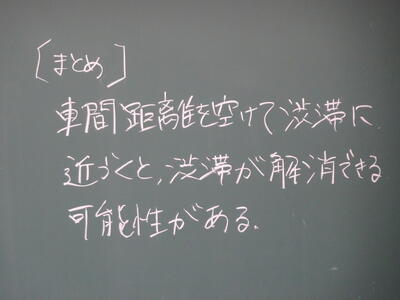 [まとめ]
車間距離を空けて渋滞に
近づくと,渋滞が解消できる
可能性がある.